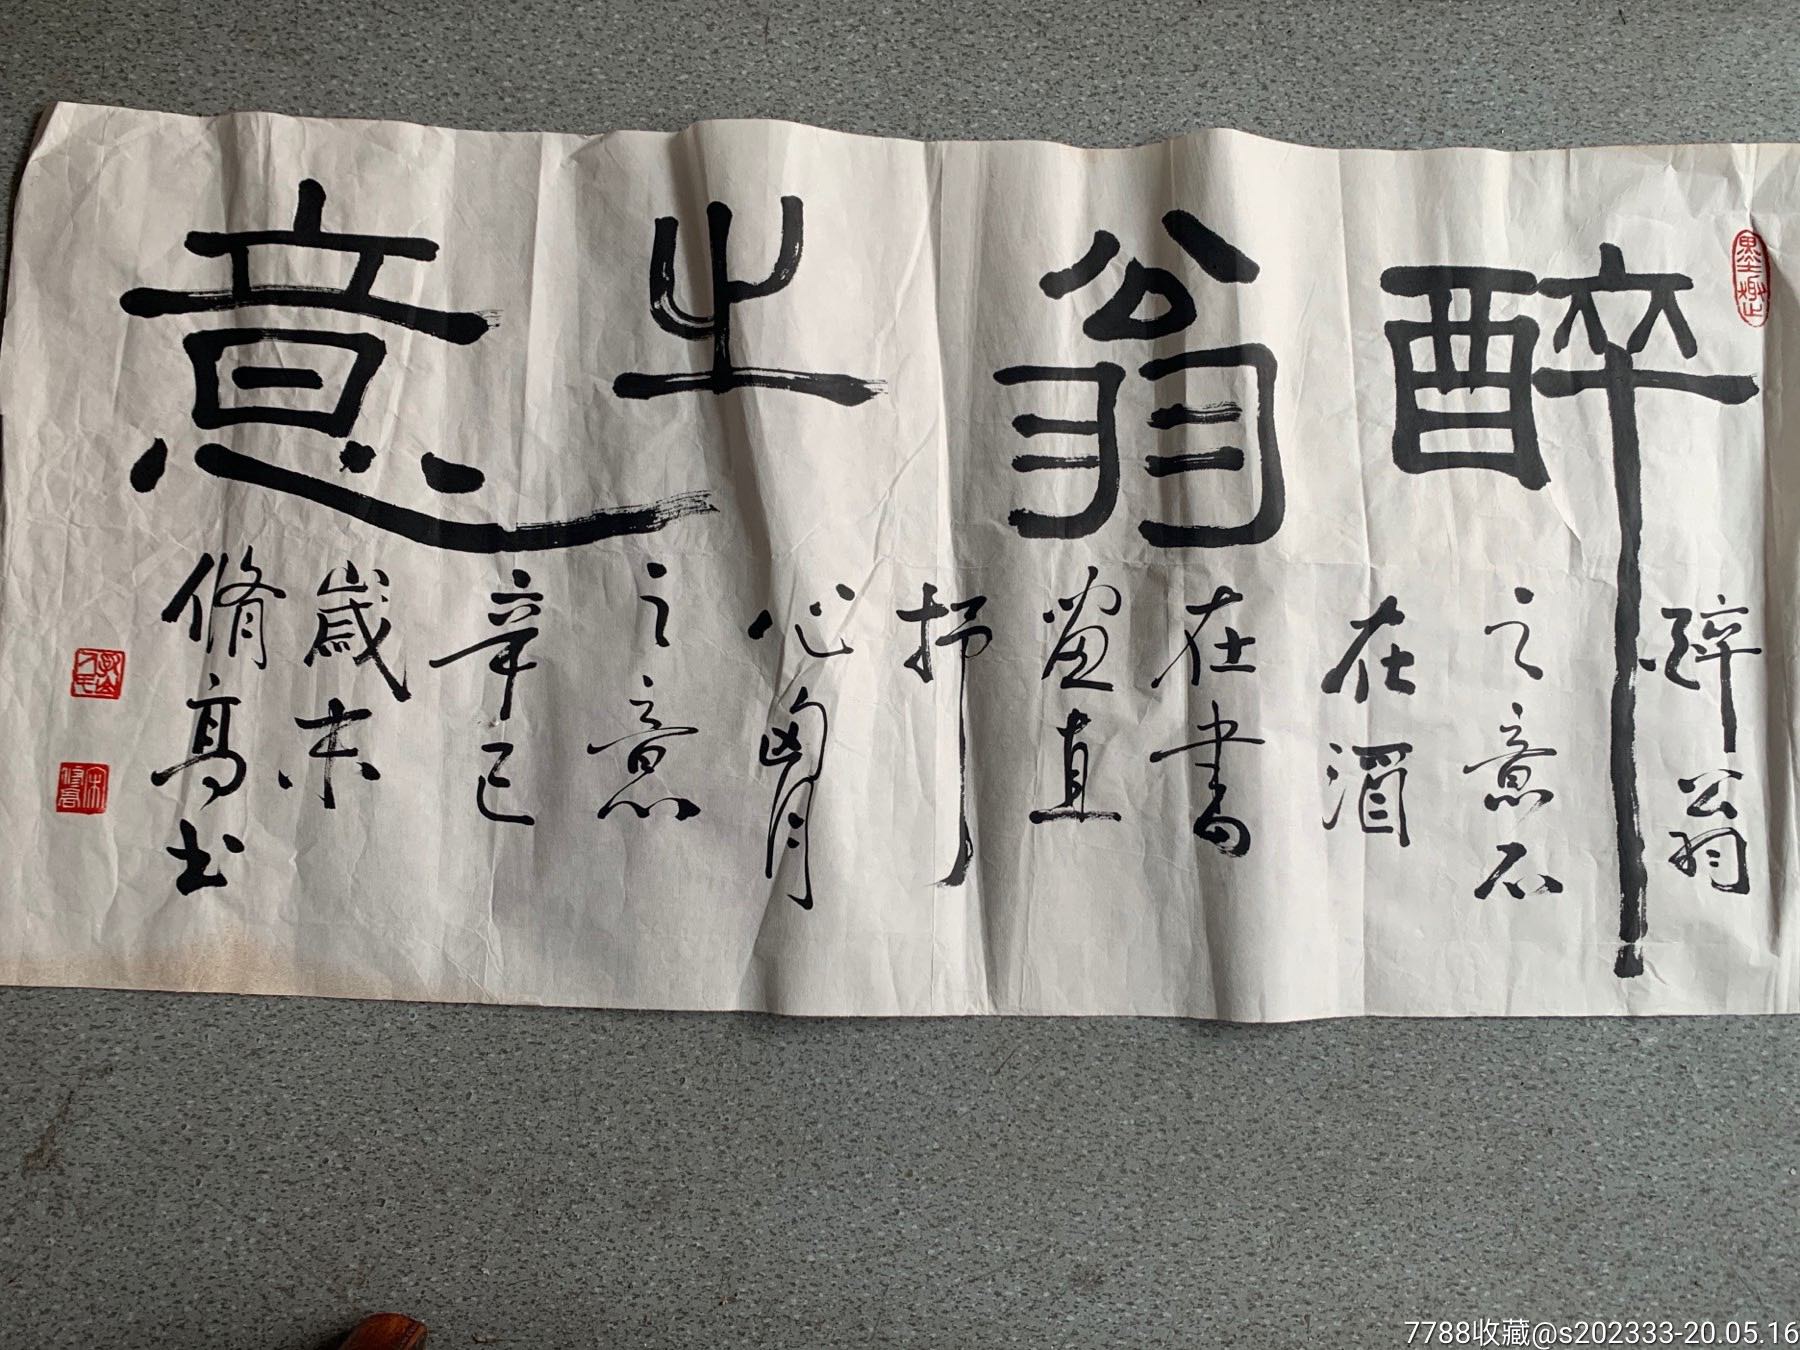 醉翁之意
醉翁
之意不
在酒
在書
畫直
抒
心胸
之意
辛巳
歲末
脩高书
7788收藏@s202333-20.05.16